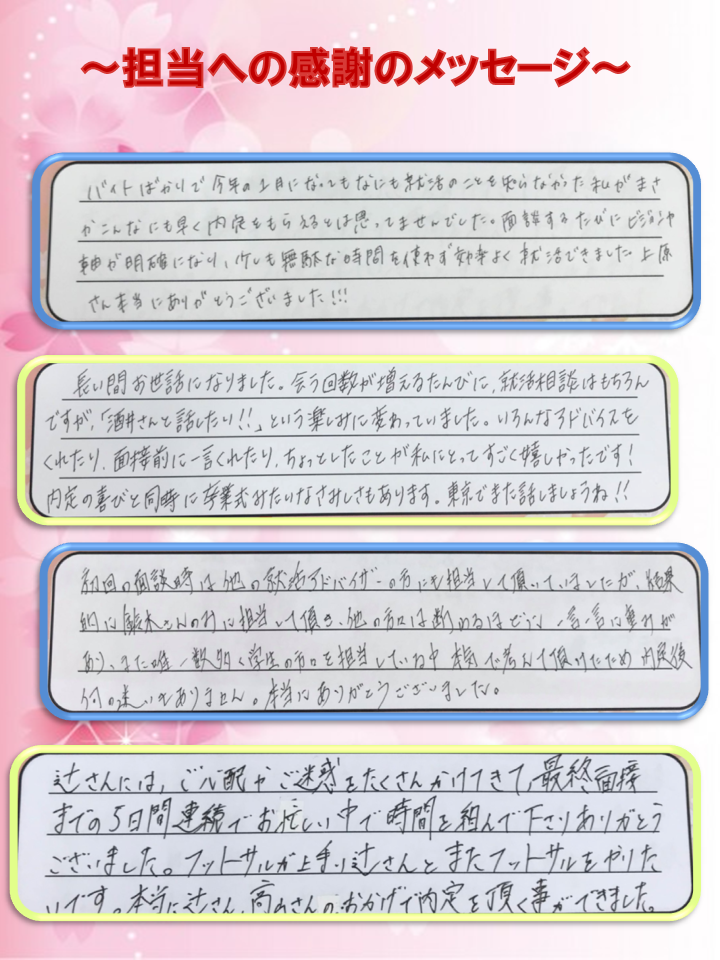 ～担当への感謝のメッセージ～
バイトばかりで今年の1月になってもなにも就活のことを知らなかった私がまさ
かこんなにも早く内定をもらえるとは思ってませんでした。面談するたびにビジョンや
軸が明確になり、少しも無駄な時間を使わず効率よく就活できました上原
さん本当にありがとうございました!!!
長い間お世話になりました。会う回数が増えるたんびに、就活相談はもちろん
ですが、「酒井さんと話したい!!」という楽しみに変わっていました。いろんなアドバイスを
くれたり、面接前に一言くれたり、ちょっとしたことが私にとってすごく嬉しかったです!
内定の喜びと同時に卒業式みたいなさみしさもあります。東京でまた話しましょうね!!
初回の面談時は他の就活アドバイザーの方にも担当して頂いていましたが、結果
的に鈴木さんのみに担当して頂き、他の方々は断わるほどに、一言一言に重みが
あり、また唯一数多く学生の方々を担当している中本気で考えて頂けたため内定後
何の迷いもありません。本当にありがとうございました。
辻さんには、ご心配やご迷惑をたくさんかけてきて、最終面接
までの5日間連続でお忙しい中で時間を組んで下さりありがとう
ございました。フットサルが上手い辻さんとまたフットサルをやりた
いです。本当に辻さん、高山さんのおかげで内定を頂く事ができました。